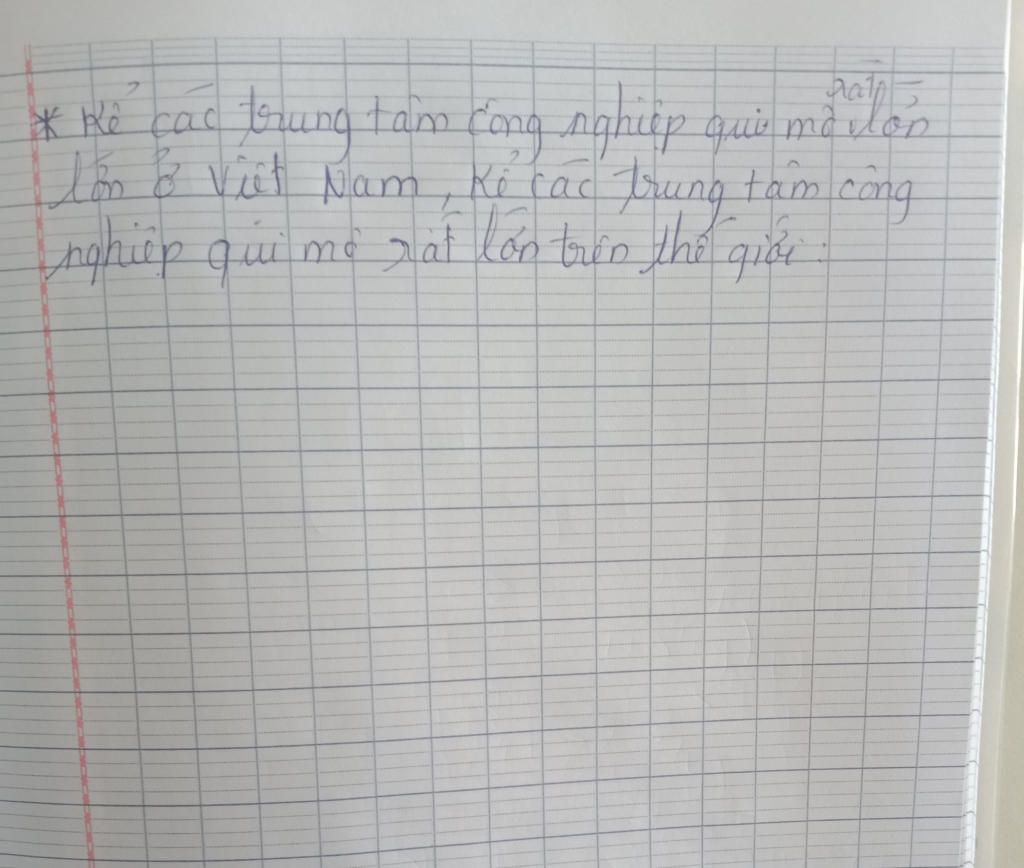 * Kể các trung tâm công nghiệp qui mô rất lớn
lớn ở Việt Nam, Kể các trung tâm công
nghiệp qui mô rất lớn trên thế giới.